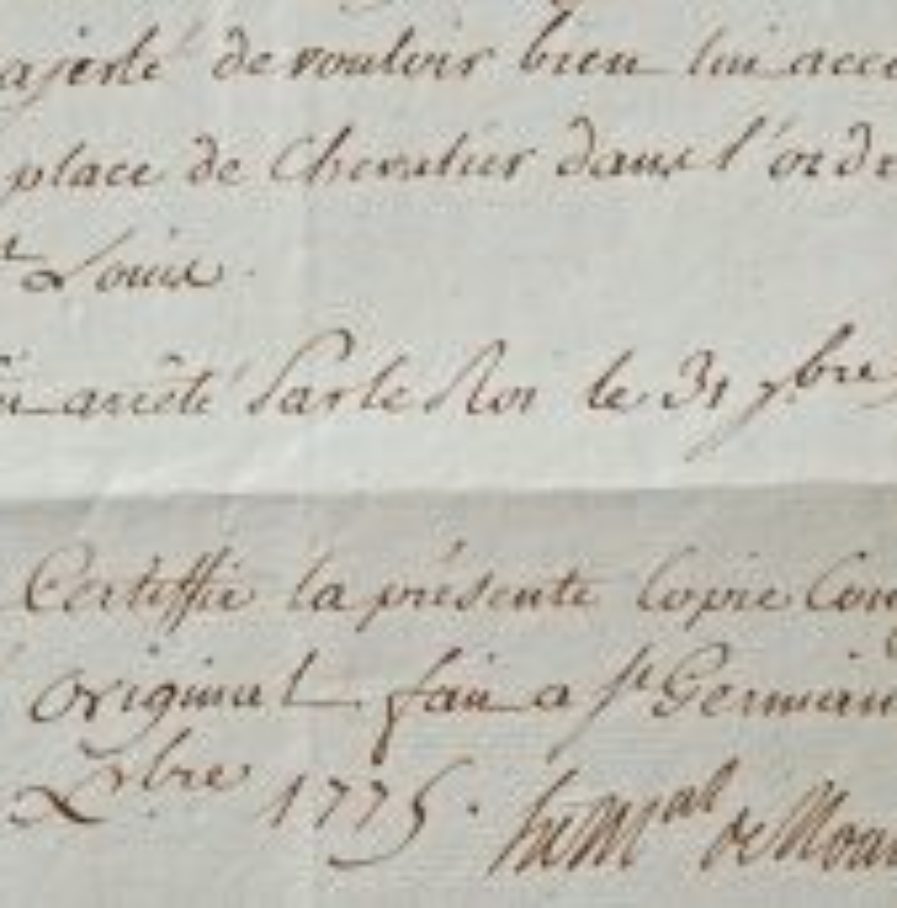 ajesté de vouloir bien lui acco
place de Chevalier dans l'ordr
t Louis.
arrêté Par le Roi le 31 bre
Certiffie la présente Copie Con
original fait a St Germain
Xbre 1775. le Mal de Noai